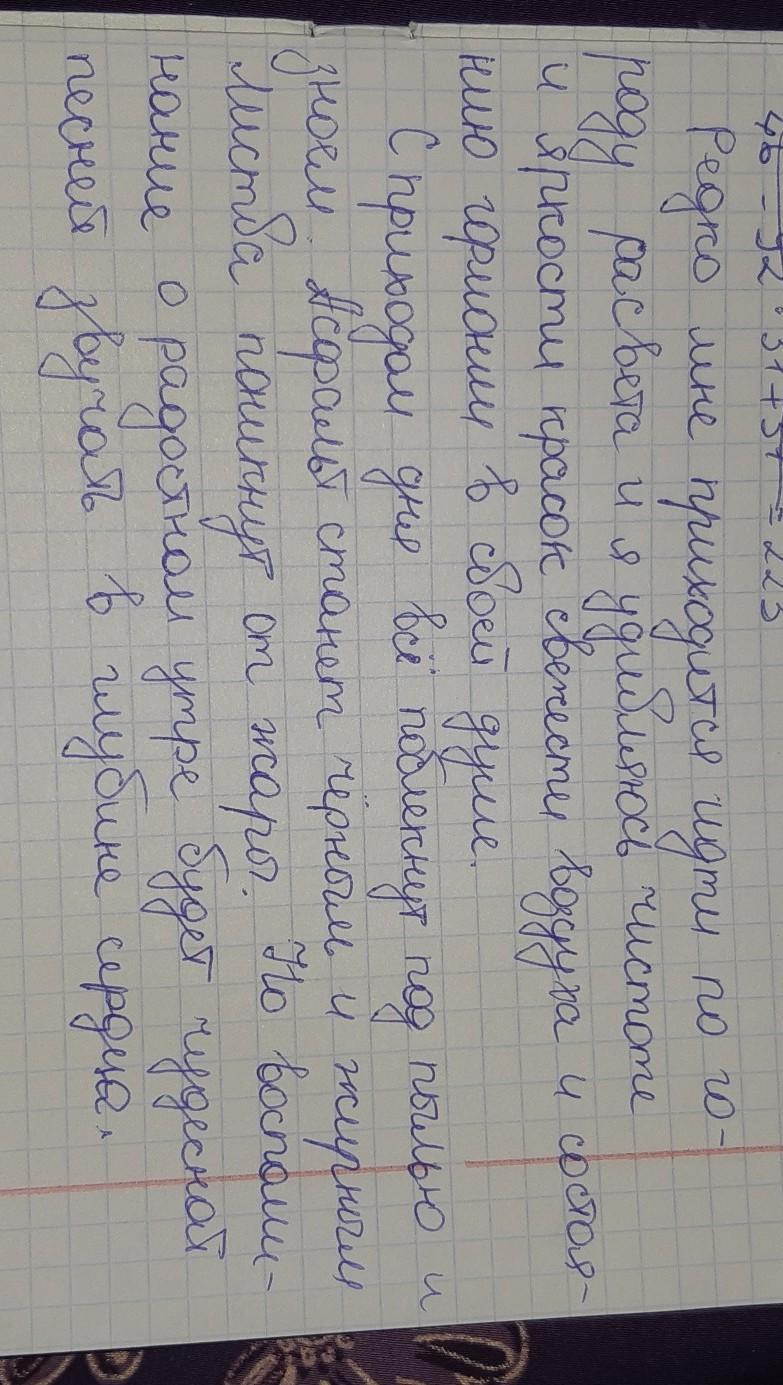 Редко мне приходится идти по го-
роду расвета и я удивляюсь чистоте
и яркости красок свежести воздуха и состоя-
нию гормонии в своей душе.
С приходом дня всё поблекнут под пылью и
зноем. Асфальт станет чёрным и жирным
Листва поникнут от жары. Но воспоми-
нание о радостном утре будет чудесной
песней звучать в глубине сердца.